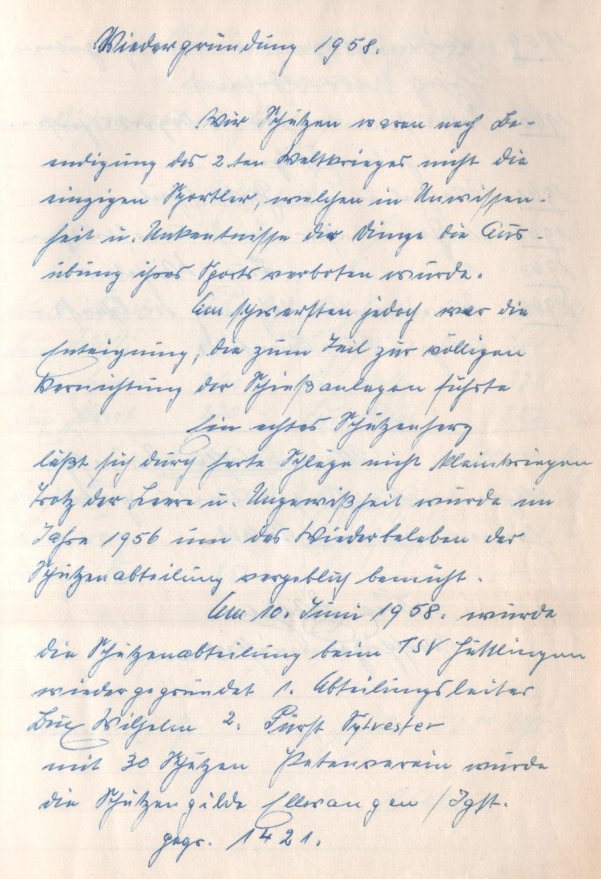 Wiedergründung 1958.
Wir Schützen waren nach Be-
endigung des 2.ten Weltkrieges nicht die
einzigen Sportler, welchen in Unwissen-
heit u. Unkentnisse der Dinge die Aus-
übung ihres Sports verboten wurde.
Am schwersten jedoch war die
Enteignung, die zum Teil zur völligen
Vernichtung der Schießanlagen führte
Ein echtes Schützenherz
läßt sich durch harte Schläge nicht kleinkriegen
Trotz der Leere u. Ungewißheit wurde im
Jahre 1956 um das Wiederbeleben der
Schützenabteilung vergeblich bemüht.
Am 10. Juni 1958. wurde
die Schützenabteilung beim TSV Hüttlingen
wiedergegründet 1. Abteilungsleiter
Wilhelm 2. Fürst Sylvester
mit 30 Schützen Patenverein wurde
die Schützengilde Ellwangen / Jgst.
gegr. 1421.